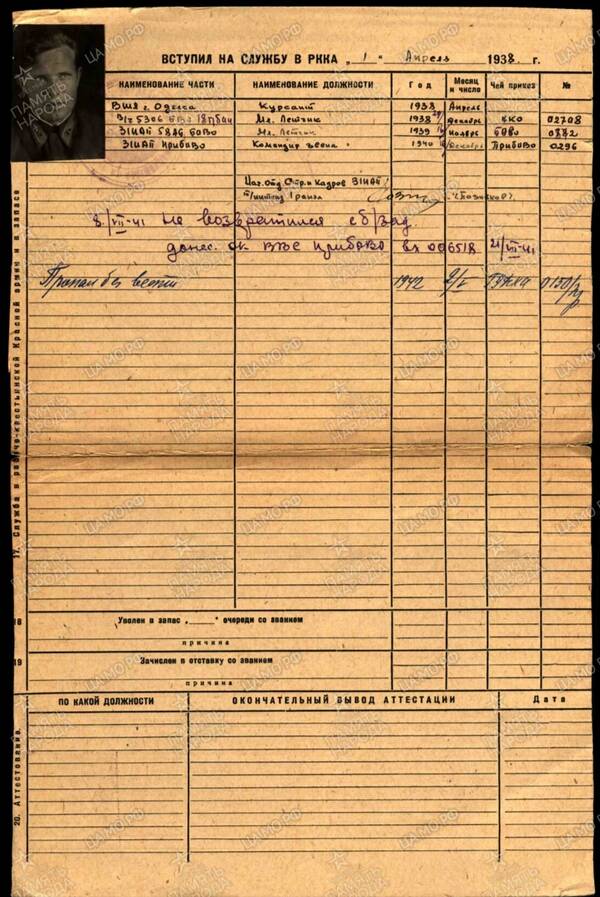 ВСТУПИЛ НА СЛУЖБУ В РККА „1“ Апрель 1938 г.
НАИМЕНОВАНИЕ ЧАСТИ НАИМЕНОВАНИЕ ДОЛЖНОСТИ Год Месяц и число Чей приказ №
ВШЛ г. Одесса Курсант 1938 Апрель
В/ч 5306 БОВО Мл. Летчик 1938 декабрь ККО 02708
31ИАП БОВО Мл. Летчик 1939 Ноябрь БОВО
31ИАП ПриБОВО Командир звена 1940 Декабрь ПриБОВО 0296
Нач. Отд. Стр. и Кадров 31ИАП
т/интенд. 1 ранга
8/VII-41 не возвратился с б/зад.
донес. ОК ВВС ПриБОВО вх 006518 21/VII-41
Пропал без вести 1942 2/V ГУККА 0150
17. Служба в рабоче-крестьянской Красной армии и в запасе
18 Уволен в запас „ “ очереди со званием
причина
19 Зачислен в отставку со званием
причина
20. Аттестование.
ПО КАКОЙ ДОЛЖНОСТИ ОКОНЧАТЕЛЬНЫЙ ВЫВОД АТТЕСТАЦИИ Дата
ПАМЯТЬ НАРОДА
ЦАМО.РФ